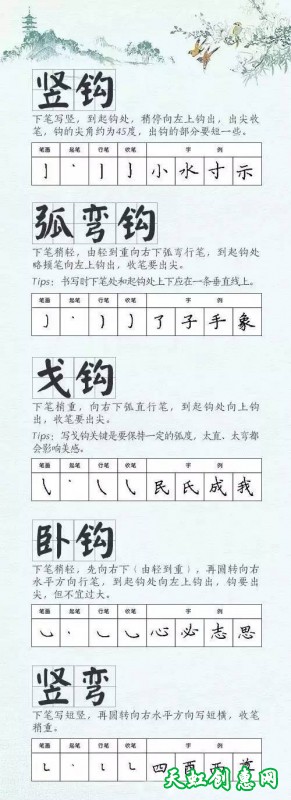 竖钩
下笔写竖，到起钩处，稍停向左上钩出，出尖收
笔，钩的尖角约为45度，出钩的部分要短一些。
笔画 起笔 行笔 收笔 字 例
亅 丶 丨 亅 小 水 寸 示
弧弯钩
下笔稍轻，由轻到重向右下弧弯行笔，到起钩处
略顿笔向左上钩出，收笔要出尖。
Tips：书写时下笔处和起钩处上下应在一条垂直线上。
笔画 起笔 行笔 收笔 字 例
了 子 手 象
戈钩
下笔稍重，向右下弧直行笔，到起钩处向上钩
出，收笔要出尖。
Tips：写戈钩关键是要保持一定的弧度，太直、太弯都
会影响美感。
笔画 起笔 行笔 收笔 字 例
民 氏 成 我
卧钩
下笔稍轻，先向右下（由轻到重），再圆转向右
水平方向行笔，到起钩处向左上钩出，钩要出
尖，但不宜过大。
笔画 起笔 行笔 收笔 字 例
心 必 志 思
竖弯
下笔写短竖，再圆转向右水平方向写短横，收笔
稍重。
笔画 起笔 行笔 收笔 字 例
四 酉 西
天虹创惠网